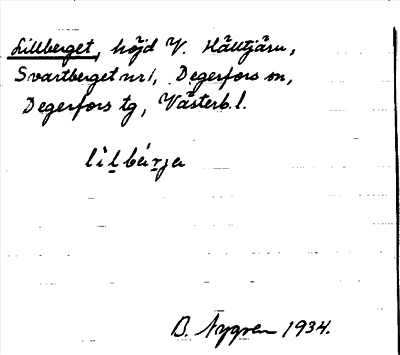 Lillberget, höjd V. Hälltjärn,
Svartberget nr 1, Degerfors sn,
Degerfors tg, Västerb. l.
lìlbárja
B. Nygren 1934.